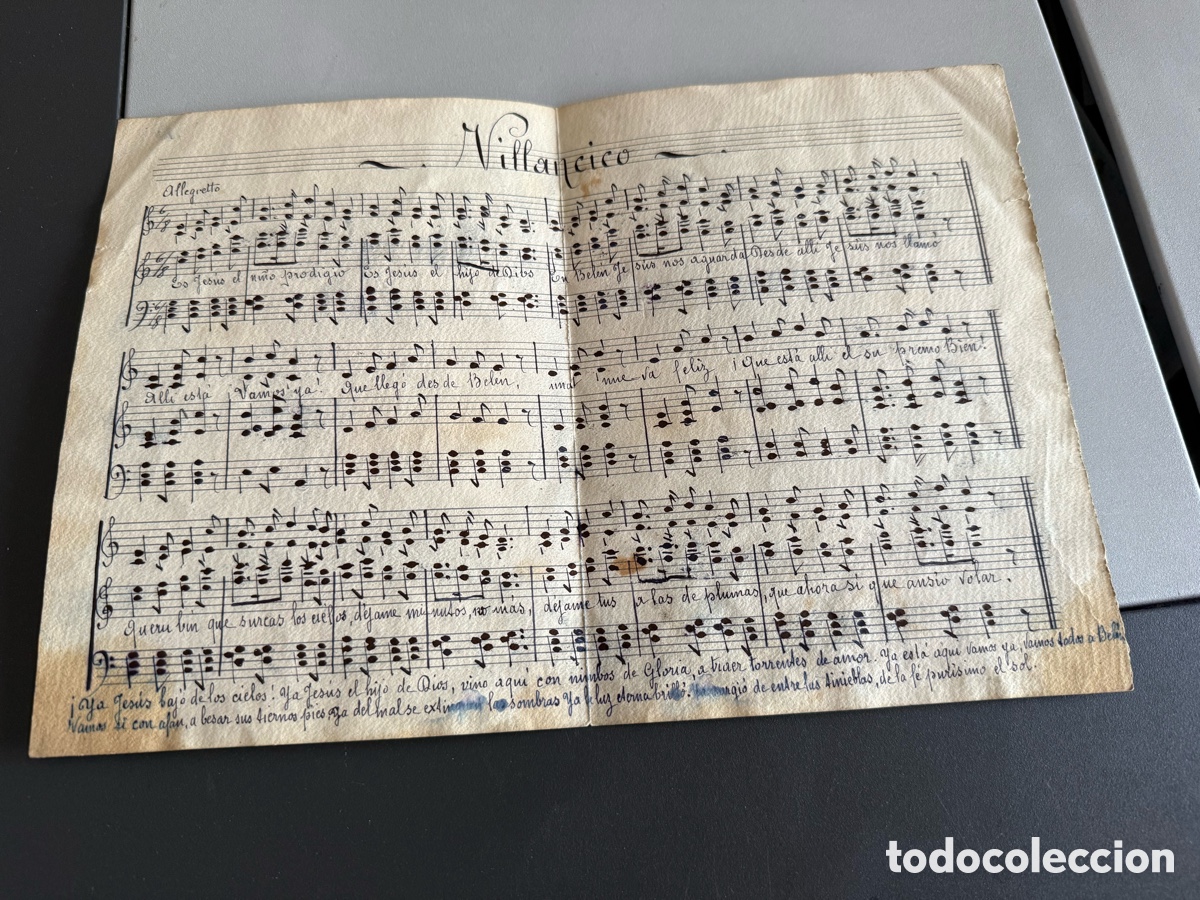 Villancico
Allegretto
Es Jesus el niño prodigio Es Jesus el hijo de Dios En Belen Je sus nos aguarda Desde alli Je sus nos llamo
Alli está Vamos ya! Que llegó des de Belén, nue va feliz ¡Que está alli el su premo Bien!
Queru bin que surcas los cielos, déjame mi nutos, no más, dejame tus a las de plumas, que ahora si que ansio volar.
¡Ya Jesús bajó de los cielos! Ya Jesus el hijo de Dios, vino aqui con nimbos de Gloria, a traer torrentes de amor. Ya esta aqui vamos ya, vamos todos a Belén,
Vamos si con afan, a besar sus tiernos pies, ya del mal se las sombras Ya la luz eterna brilló: de entre las tinieblas, de la fé purisimo el sol.
todocoleccion